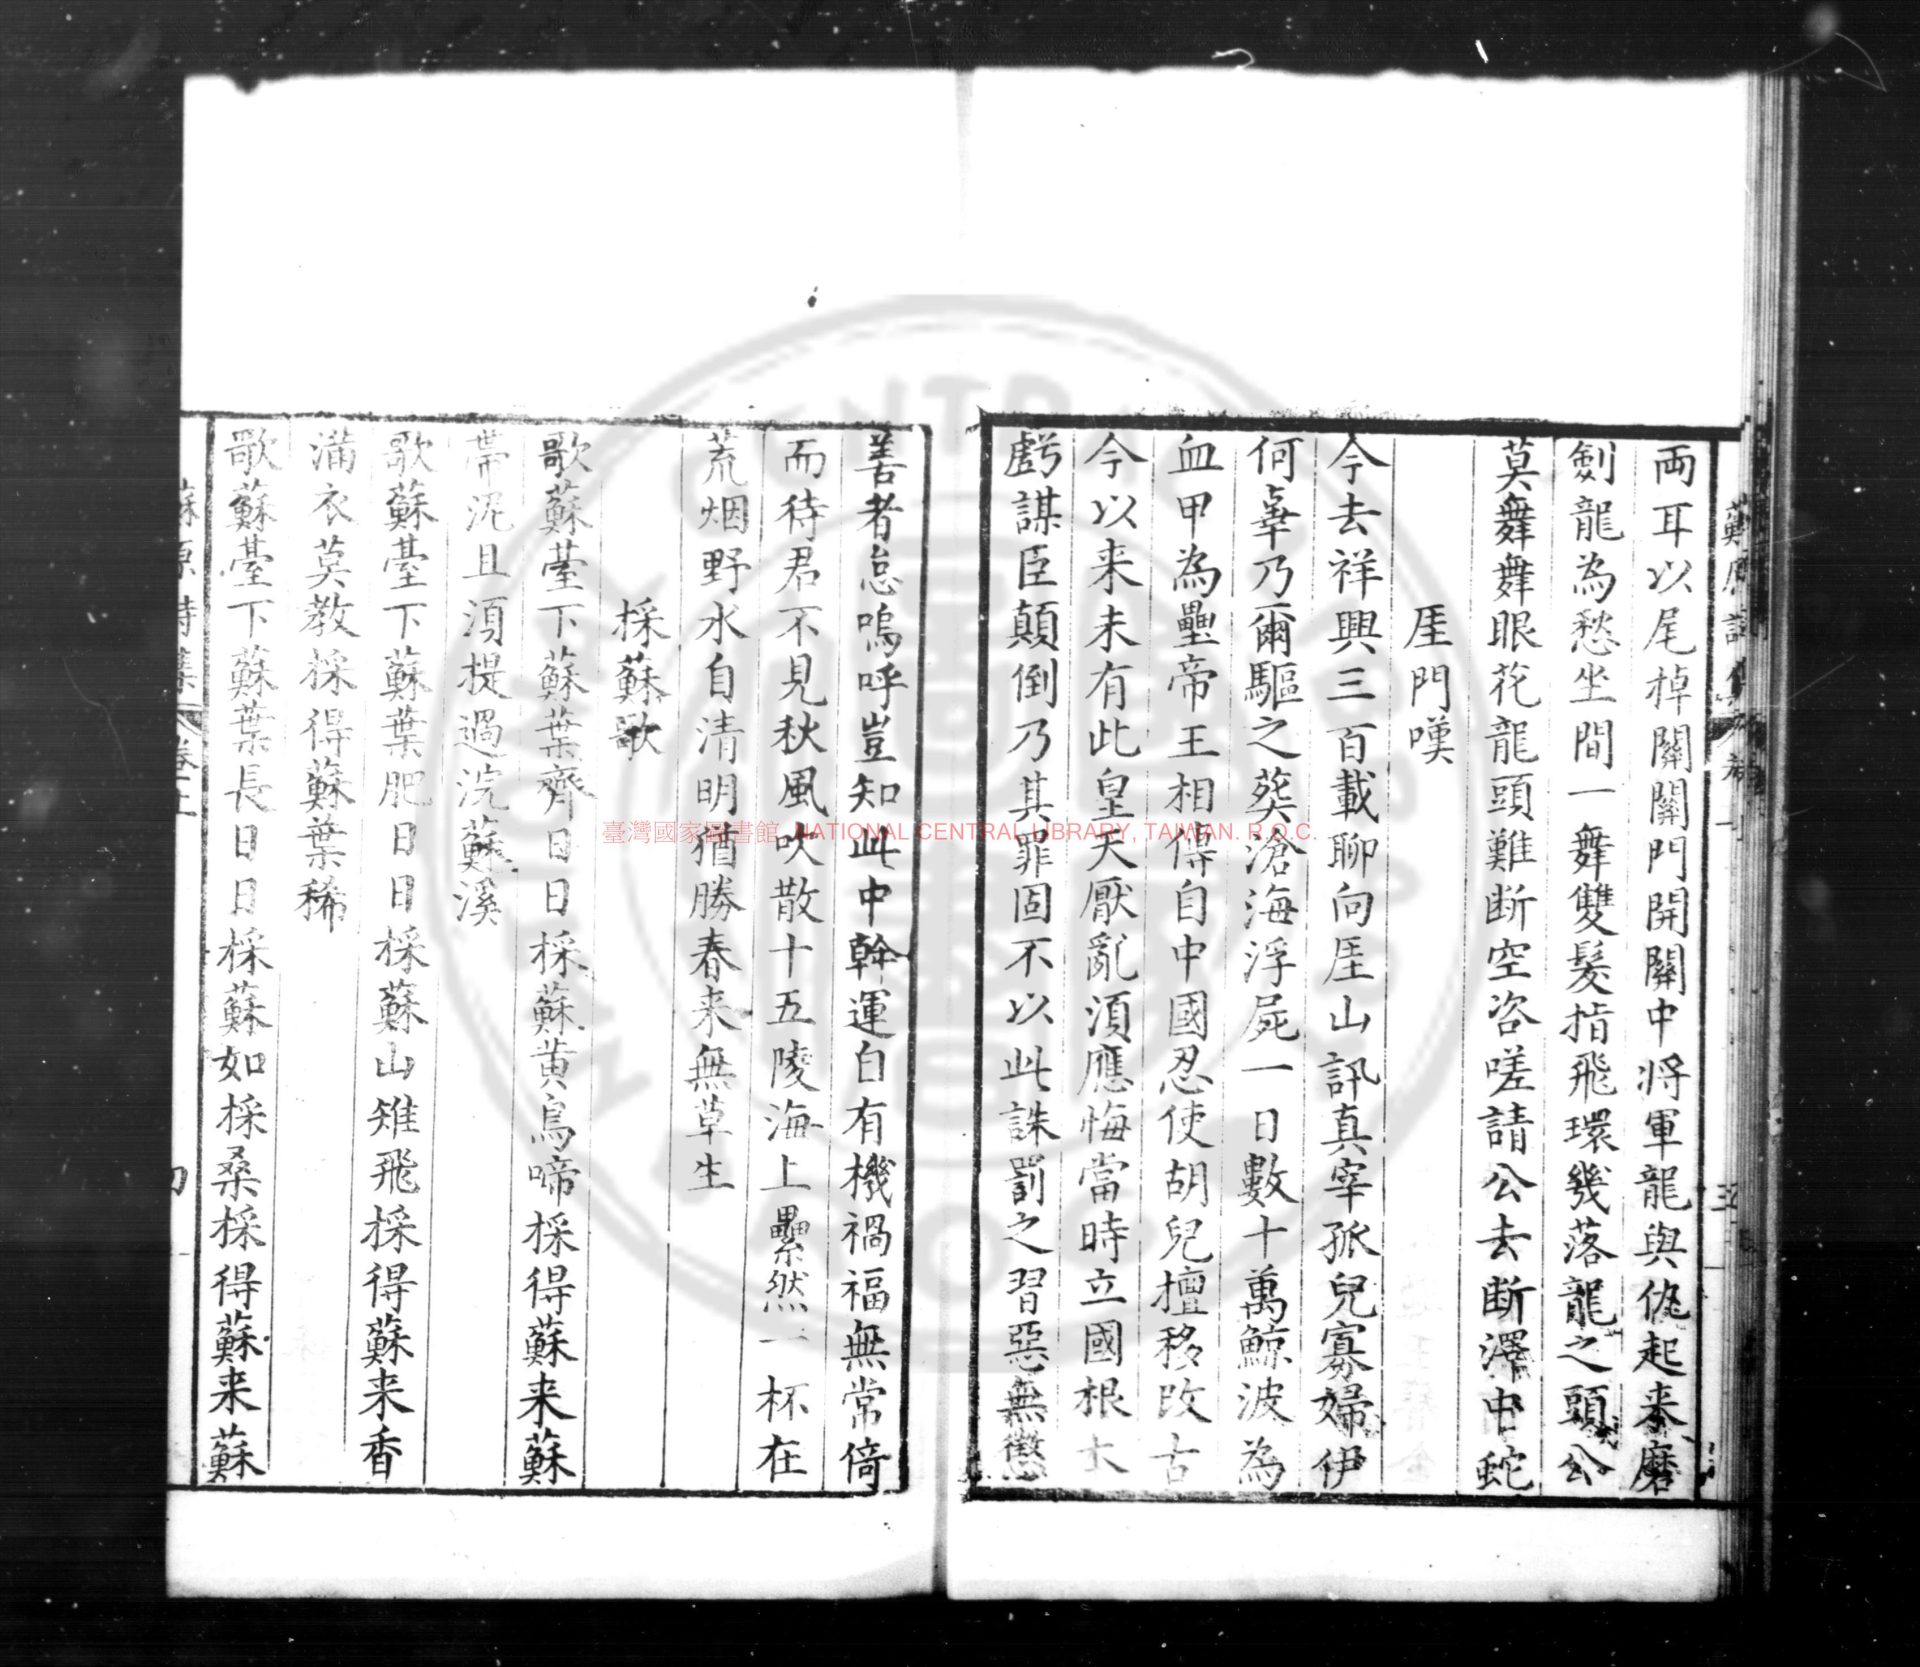 両耳以尾棹關關門開關中将軍龍與仇起来磨
劍龍為愁坐間一舞雙髮指飛環幾落龍之頭公
莫舞舞眼花龍頭難断空咨嗟請公去断澤中蛇
厓門嘆
今去祥興三百載聊向厓山訊真宰孤兒寡婦伊
何辜乃爾驅之葬滄海浮屍一日數十萬鯨波為
血甲為壘帝王相傳自中國忍使胡兒擅移改古
今以来未有此皇天厭亂須應悔當時立國根
虧謀臣顛倒乃其罪固不以此誅罰之習惡無懲
善者怠嗚呼豈知此中幹運白有機禍福無常倚
而待君不見秋風吹散十五陵海上纍然一杯在
荒烟野水自清明猶勝春来無草生
採蘇歌
歌蘇臺下蘇葉齊日日採蘇黄烏啼採得蘇来蘇
帶泥且須提過浣蘇溪
歌蘇臺下蘇葉肥日日採蘇山雉飛採得蘇来香
滿衣莫教採得蘇葉稀
歌蘇臺下蘇葉長日日採蘇如採桑採得蘇来蘇
蘇原詩集 卷上
臺灣國家圖書館, NATIONAL CENTRAL LIBRARY, TAIWAN. R.O.C.